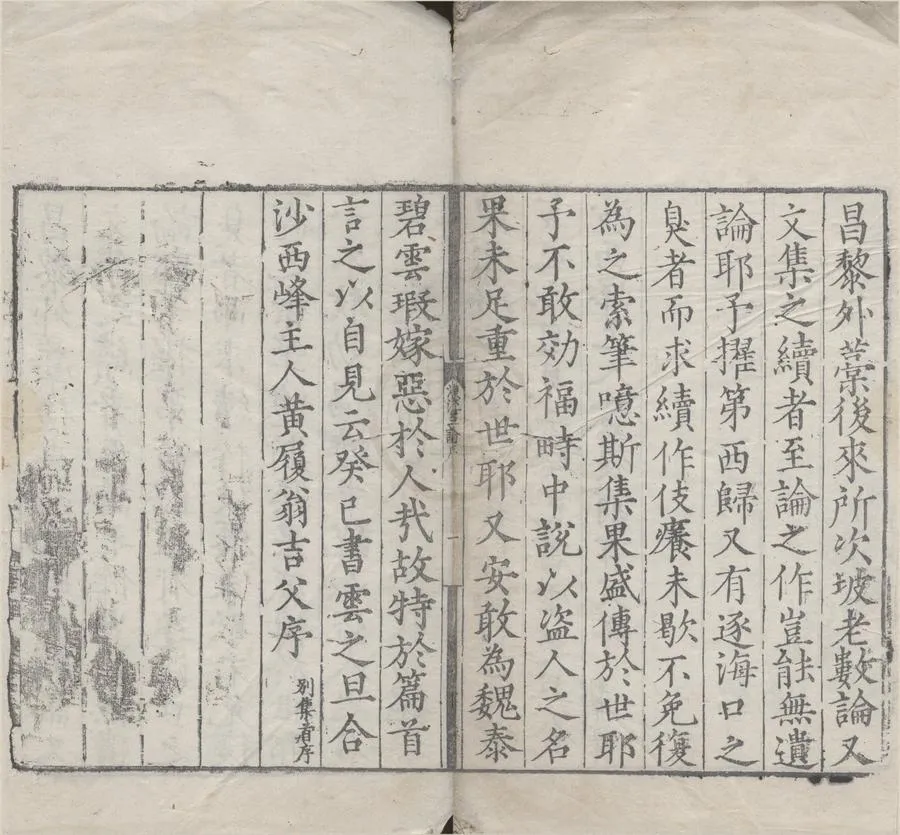 昌黎外藁後來所次坡老數論又
文集之續者至論之作豈能無遺
論耶予擢第西歸又有逐海口之
臭者而求續作伎癢未歇不免復
為之索筆噫斯集果盛傳於世耶
予不敢効福畤中説以盗人之名
果未足重於世耶又安敢為魏泰
碧雲瑕嫁惡於人㢤故特於篇首
言之以自見云癸巳書雲之旦合
沙西峰主人黃履翁吉父序
別集者序
一